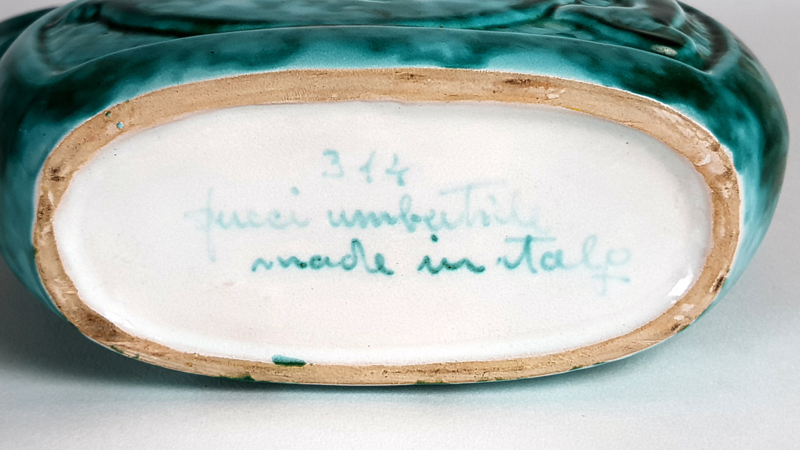 314
pucci umbertide
made in italy